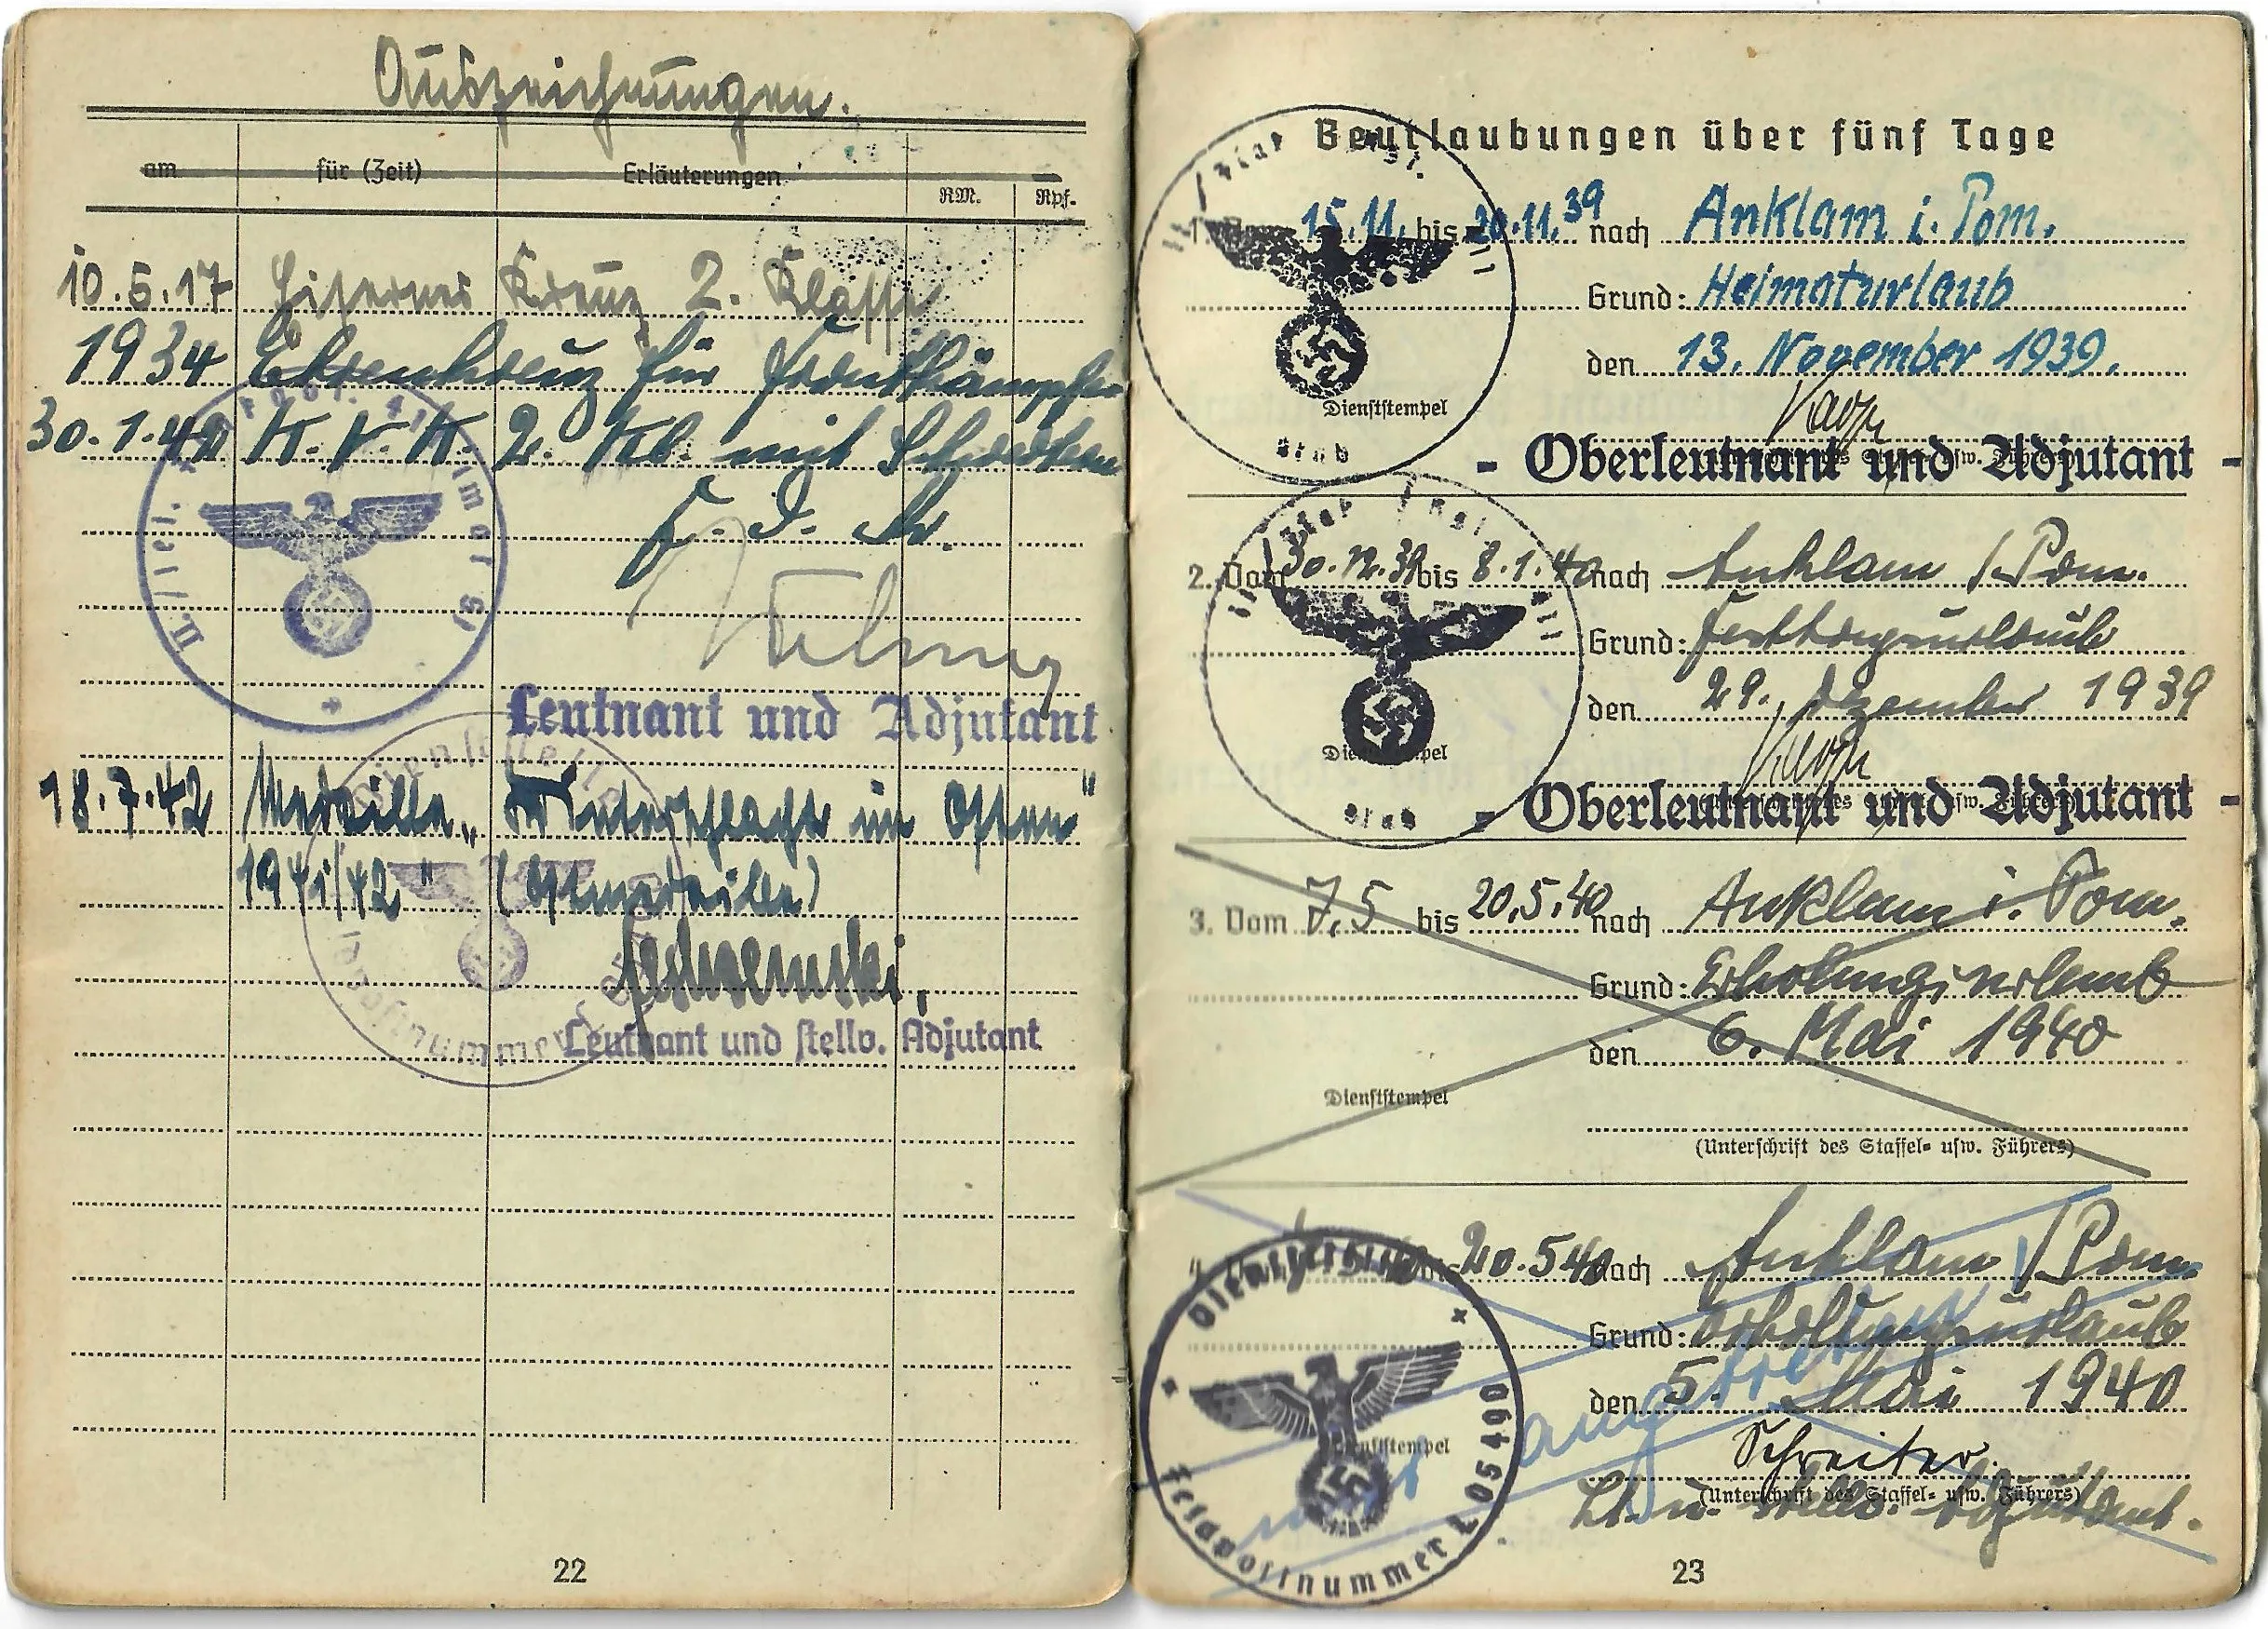 Auszeichnungen.
am für (Zeit) Erläuterungen RM. Rpf.
10.5.17 Eisernes Kreuz 2. Klasse
1934 Ehrenkreuz für Frontkämpfer
30.1.42 K.V.K. 2. Kl. mit Schwertern
F. d. R.
Leutnant und Adjutant
18.7.42 Medaille „Winterschlacht im Osten
1941/42" (Ostmedaille)
Leutnant und stellv. Adjutant
Dienststelle
Feldpostnummer
22
Beurlaubungen über fünf Tage
15.11. bis 20.11.39 nach Anklam i. Pom.
Grund: Heimaturlaub
den 13. November 1939.
Dienststempel
Stab
- Oberleutnant und Adjutant -
2. Vom 30.12.39 bis 8.1.40 nach Anklam /Pom.
Grund: Festtagsurlaub
den 29. Dezember 1939
Dienststempel
Stab
- Oberleutnant und Adjutant -
3. Vom 7.5 bis 20.5.40 nach Anklam i. Pom.
Grund: Erholungsurlaub
den 6. Mai 1940
Dienststempel
(Unterschrift des Staffel- usw. Führers)
4. bis 20.5.40 nach Anklam /Pom.
Grund: Erholungsurlaub
den 5. Mai 1940
nicht angetreten
Dienststempel
Schreiter
(Unterschrift des Staffel- usw. Führers)
Lt. u. stellv. Adjutant.
Dienststelle
Feldpostnummer L 05490
23